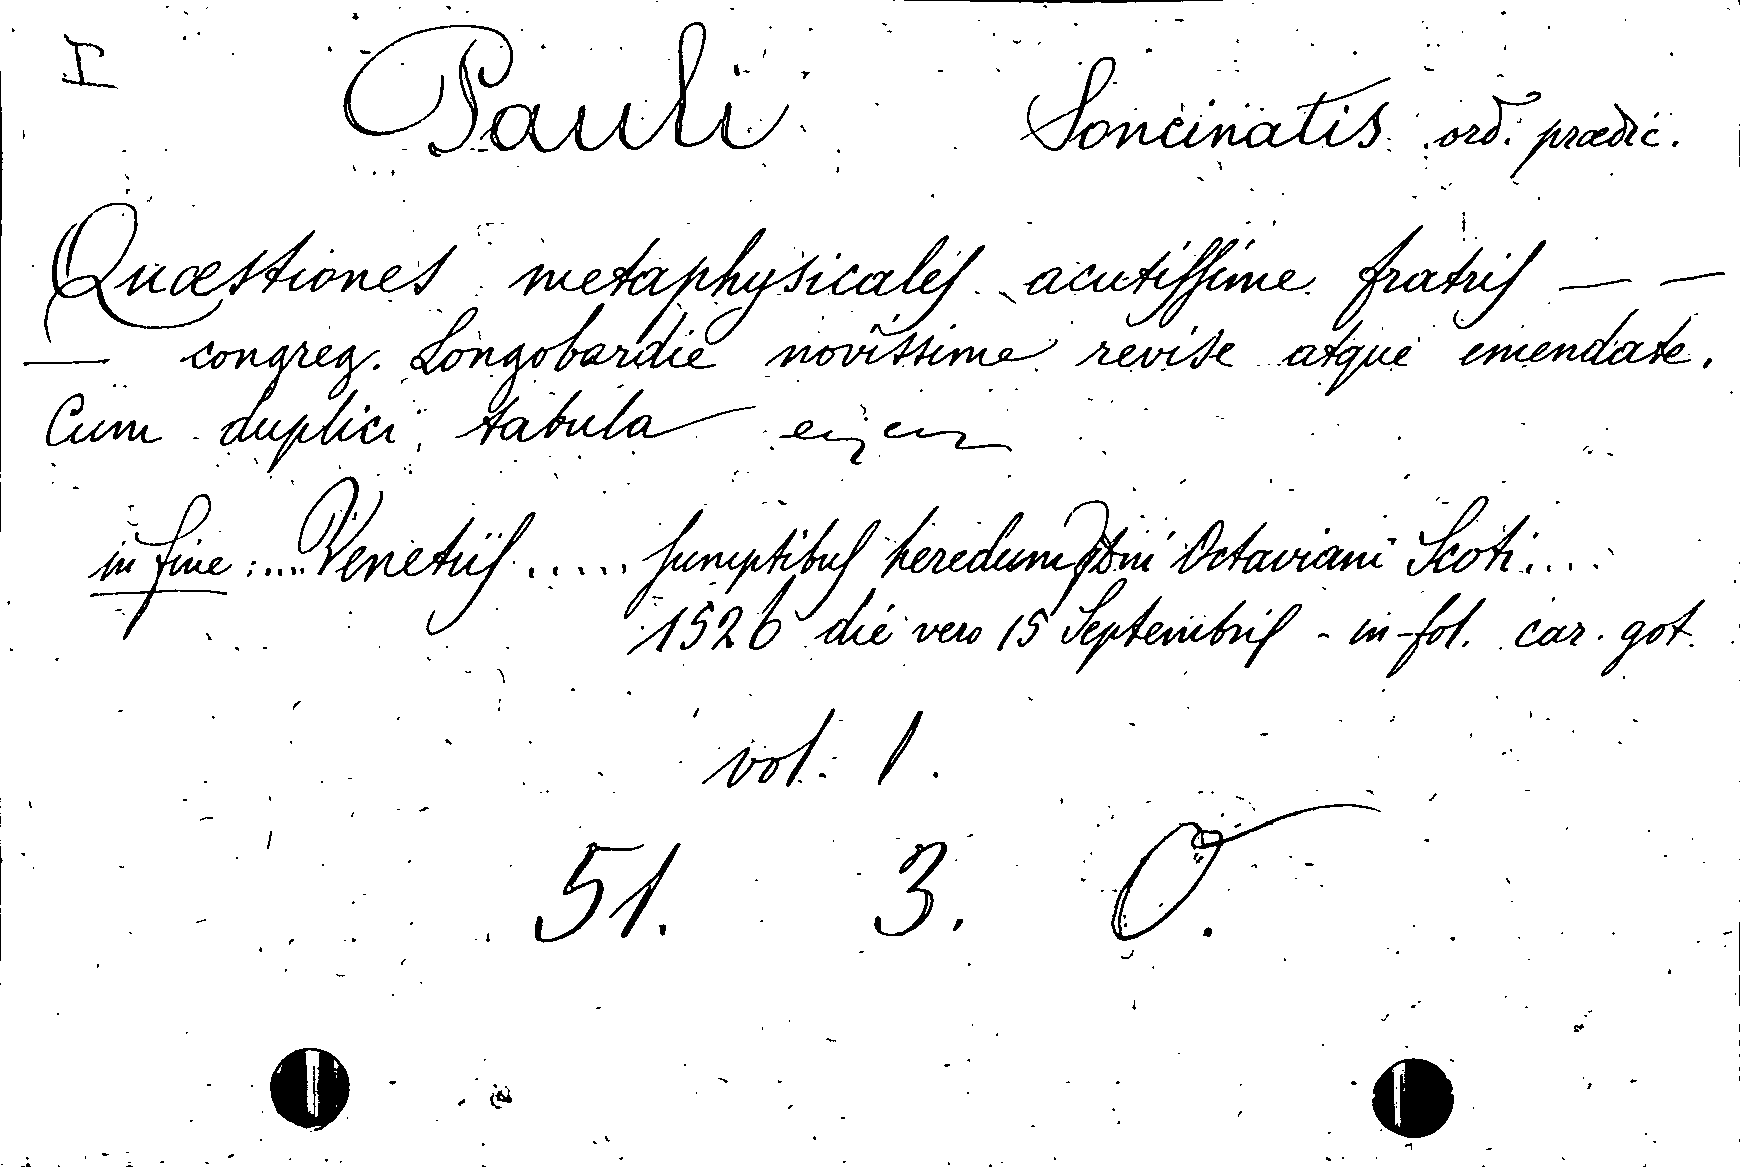 I
Pauli Soncinatis ord. prædic.
Quæstiones metaphysicales acutissime fratris — —
— congreg. Longobardie novissime revise atque emendate.
Cum duplici tabula
in fine :.... Venetiis ..... sumptibus heredum Dni Octaviani Scoti....
1526 die vero 15 Septembris - in-fol. car. got.
vol. 1.
51. 3. O.